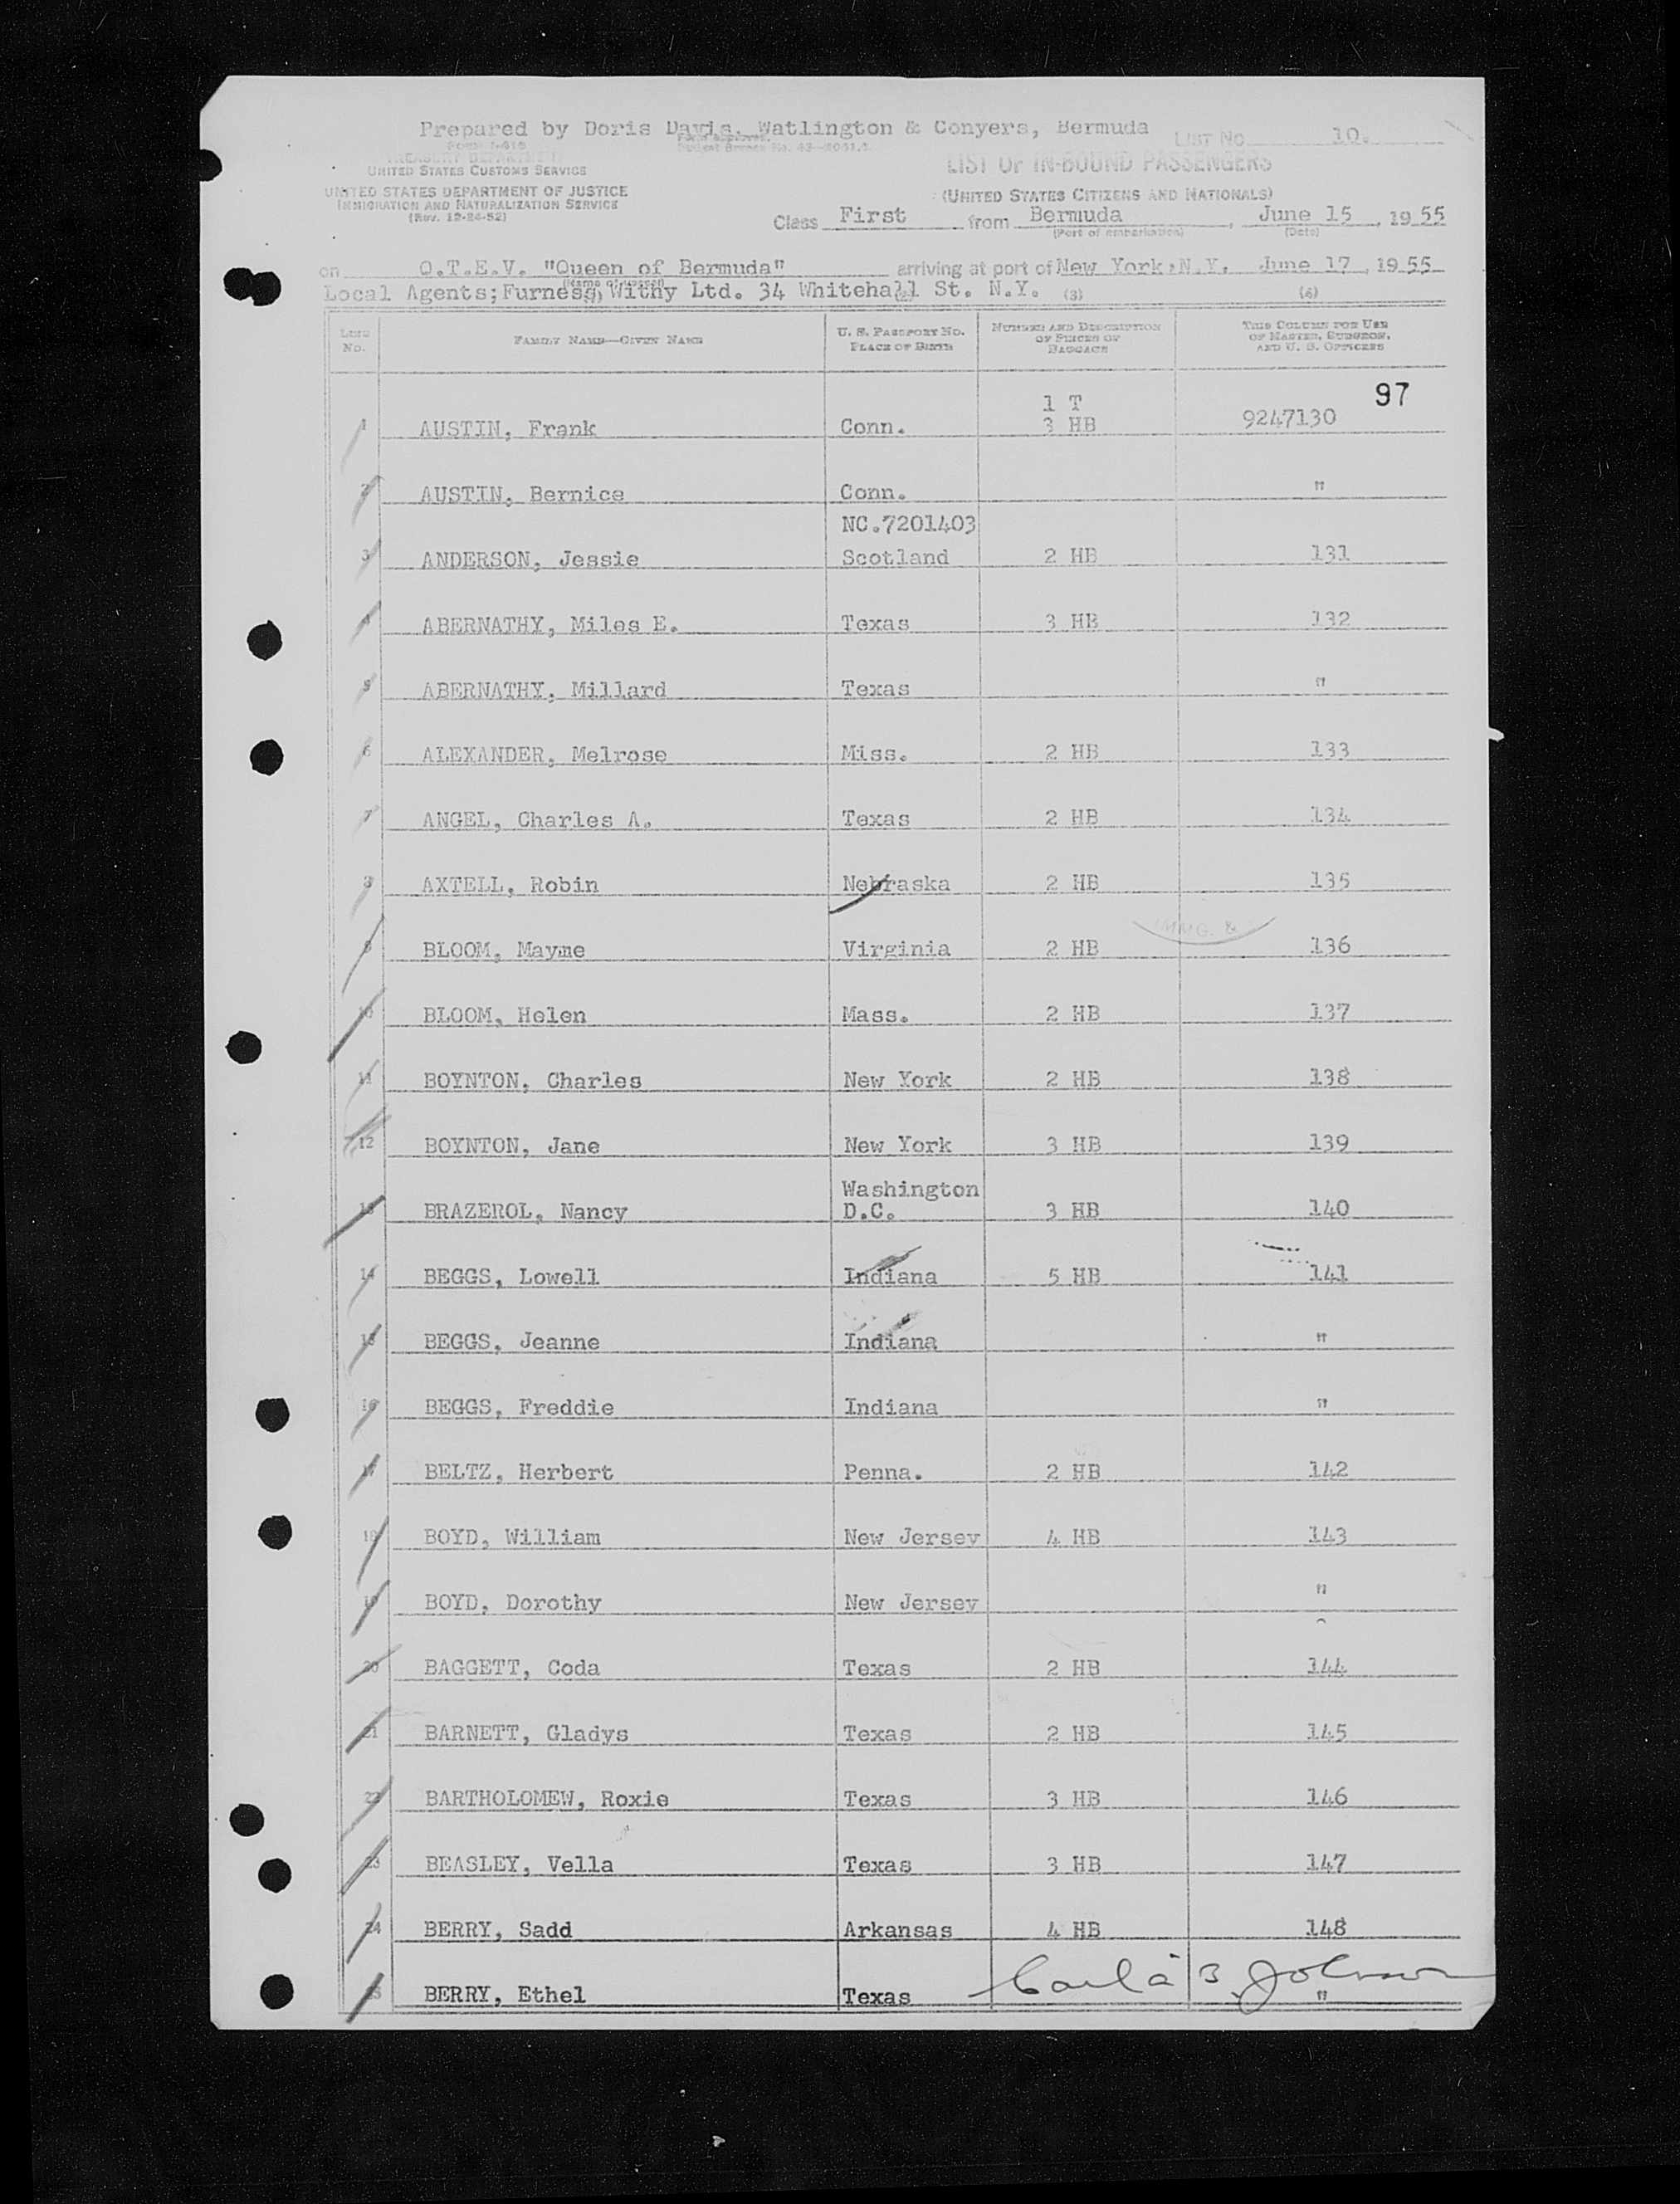 Prepared by Doris Davis, Watlington & Conyers, Bermuda
LIST NO. 10.
TREASURY DEPARTMENT
UNITED STATES CUSTOMS SERVICE
UNITED STATES DEPARTMENT OF JUSTICE
IMMIGRATION AND NATURALIZATION SERVICE
(Rev. 12-24-52)
LIST OF IN-BOUND PASSENGERS
(UNITED STATES CITIZENS AND NATIONALS)
Class First from Bermuda, June 15, 1955
(Port of embarkation) (Date)
on Q.T.E.V. "Queen of Bermuda" arriving at port of New York, N.Y. June 17, 1955
(Name of vessel)
Local Agents; Furness, Withy Ltd. 34 Whitehall St. N.Y. (3) (4)
LINE NO. FAMILY NAME—GIVEN NAME U. S. PASSPORT NO. PLACE OF BIRTH NUMBER AND DESCRIPTION OF PIECES OF BAGGAGE THIS COLUMN FOR USE OF MASTER, SURGEON, AND U. S. OFFICERS
97
1 T
1 AUSTIN, Frank Conn. 3 HB 9247130
2 AUSTIN, Bernice Conn. "
NC.7201403
3 ANDERSON, Jessie Scotland 2 HB 131
4 ABERNATHY, Miles E. Texas 3 HB 132
5 ABERNATHY, Millard Texas "
6 ALEXANDER, Melrose Miss. 2 HB 133
7 ANGEL, Charles A. Texas 2 HB 134
8 AXTELL, Robin Nebraska 2 HB 135
IMMG. &
9 BLOOM, Mayme Virginia 2 HB 136
10 BLOOM, Helen Mass. 2 HB 137
11 BOYNTON, Charles New York 2 HB 138
12 BOYNTON, Jane New York 3 HB 139
Washington
13 BRAZEROL, Nancy D.C. 3 HB 140
14 BEGGS, Lowell Indiana 5 HB 141
15 BEGGS, Jeanne Indiana "
16 BEGGS, Freddie Indiana "
17 BELTZ, Herbert Penna. 2 HB 142
18 BOYD, William New Jersey 4 HB 143
19 BOYD, Dorothy New Jersey "
20 BAGGETT, Coda Texas 2 HB 144
21 BARNETT, Gladys Texas 2 HB 145
22 BARTHOLOMEW, Roxie Texas 3 HB 146
23 BEASLEY, Vella Texas 3 HB 147
24 BERRY, Sadd Arkansas 4 HB 148
25 BERRY, Ethel Texas "
Carl a B Johnson